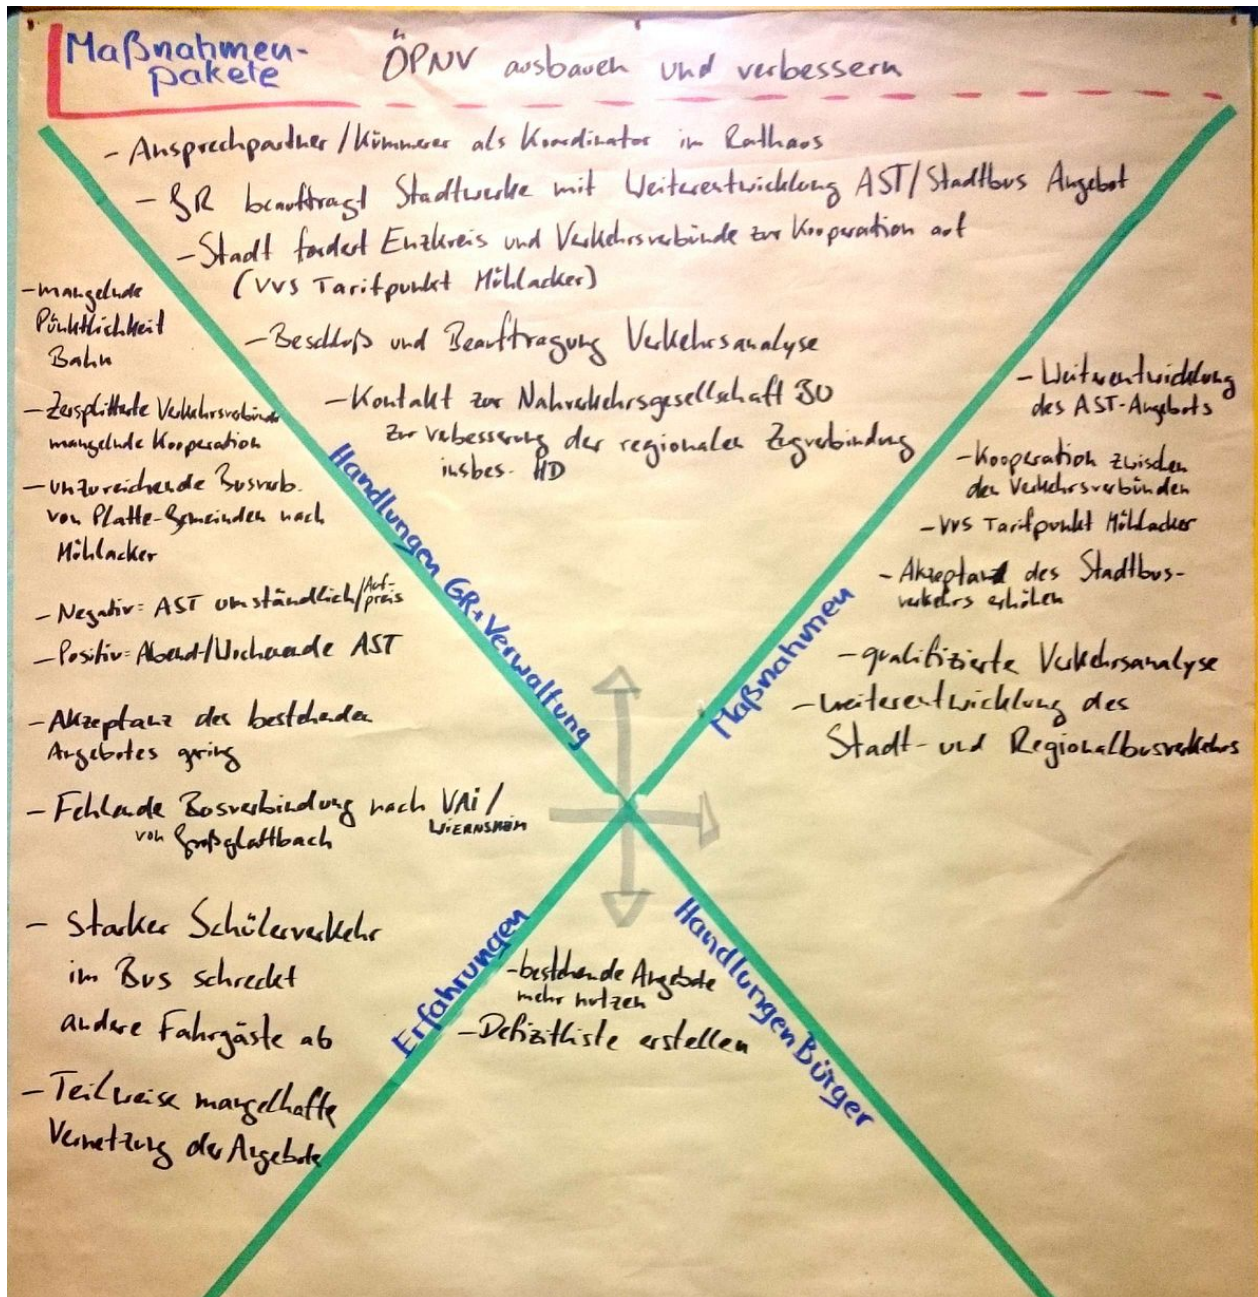 Maßnahmen-
pakete
ÖPNV ausbauen und verbessern
- Ansprechpartner/Kümmerer als Koordinator im Rathaus
- GR beauftragt Stadtwerke mit Weiterentwicklung AST/Stadtbus Angebot
- Stadt fordert Enzkreis und Verkehrsverbünde zur Kooperation auf
(VVS Tarifpunkt Mühlacker)
- Beschluß und Beauftragung Verkehrsanalyse
- Kontakt zur Nahverkehrsgesellschaft
zur verbesserung der regionalen Zugverbindung
insbes. HD
Handlungen GR+Verwaltung
- mangelnde
Pünktlichkeit
Bahn
- Zersplitterte Verkehrsverbünde
mangelnde Kooperation
- unzureichende Busverb.
von Platte-Gemeinden nach
Mühlacker
- Negativ: AST umständlich/Auf-
preis
- Positiv: Abend-/Wochenende AST
- Akzeptanz des bestehenden
Angebotes gering
- Fehlende Busverbindung nach VAi/
WIERNSHEIM
von Großglattbach
- Starker Schülerverkehr
im Bus schreckt
andere Fahrgäste ab
- Teilweise mangelhafte
Vernetzung der Angebote
Erfahrungen
- Weiterentwicklung
des AST-Angebots
- Kooperation zwischen
den Verkehrsverbünden
- VVS Tarifpunkt Mühlacker
- Akzeptanz des Stadtbus-
verkehrs erhöhen
- qualifizierte Verkehrsanalyse
- weiterentwicklung des
Stadt- und Regionalbusverkehrs
Maßnahmen
- bestehende Angebote
mehr nutzen
- Defizitliste erstellen
Handlungen Bürger